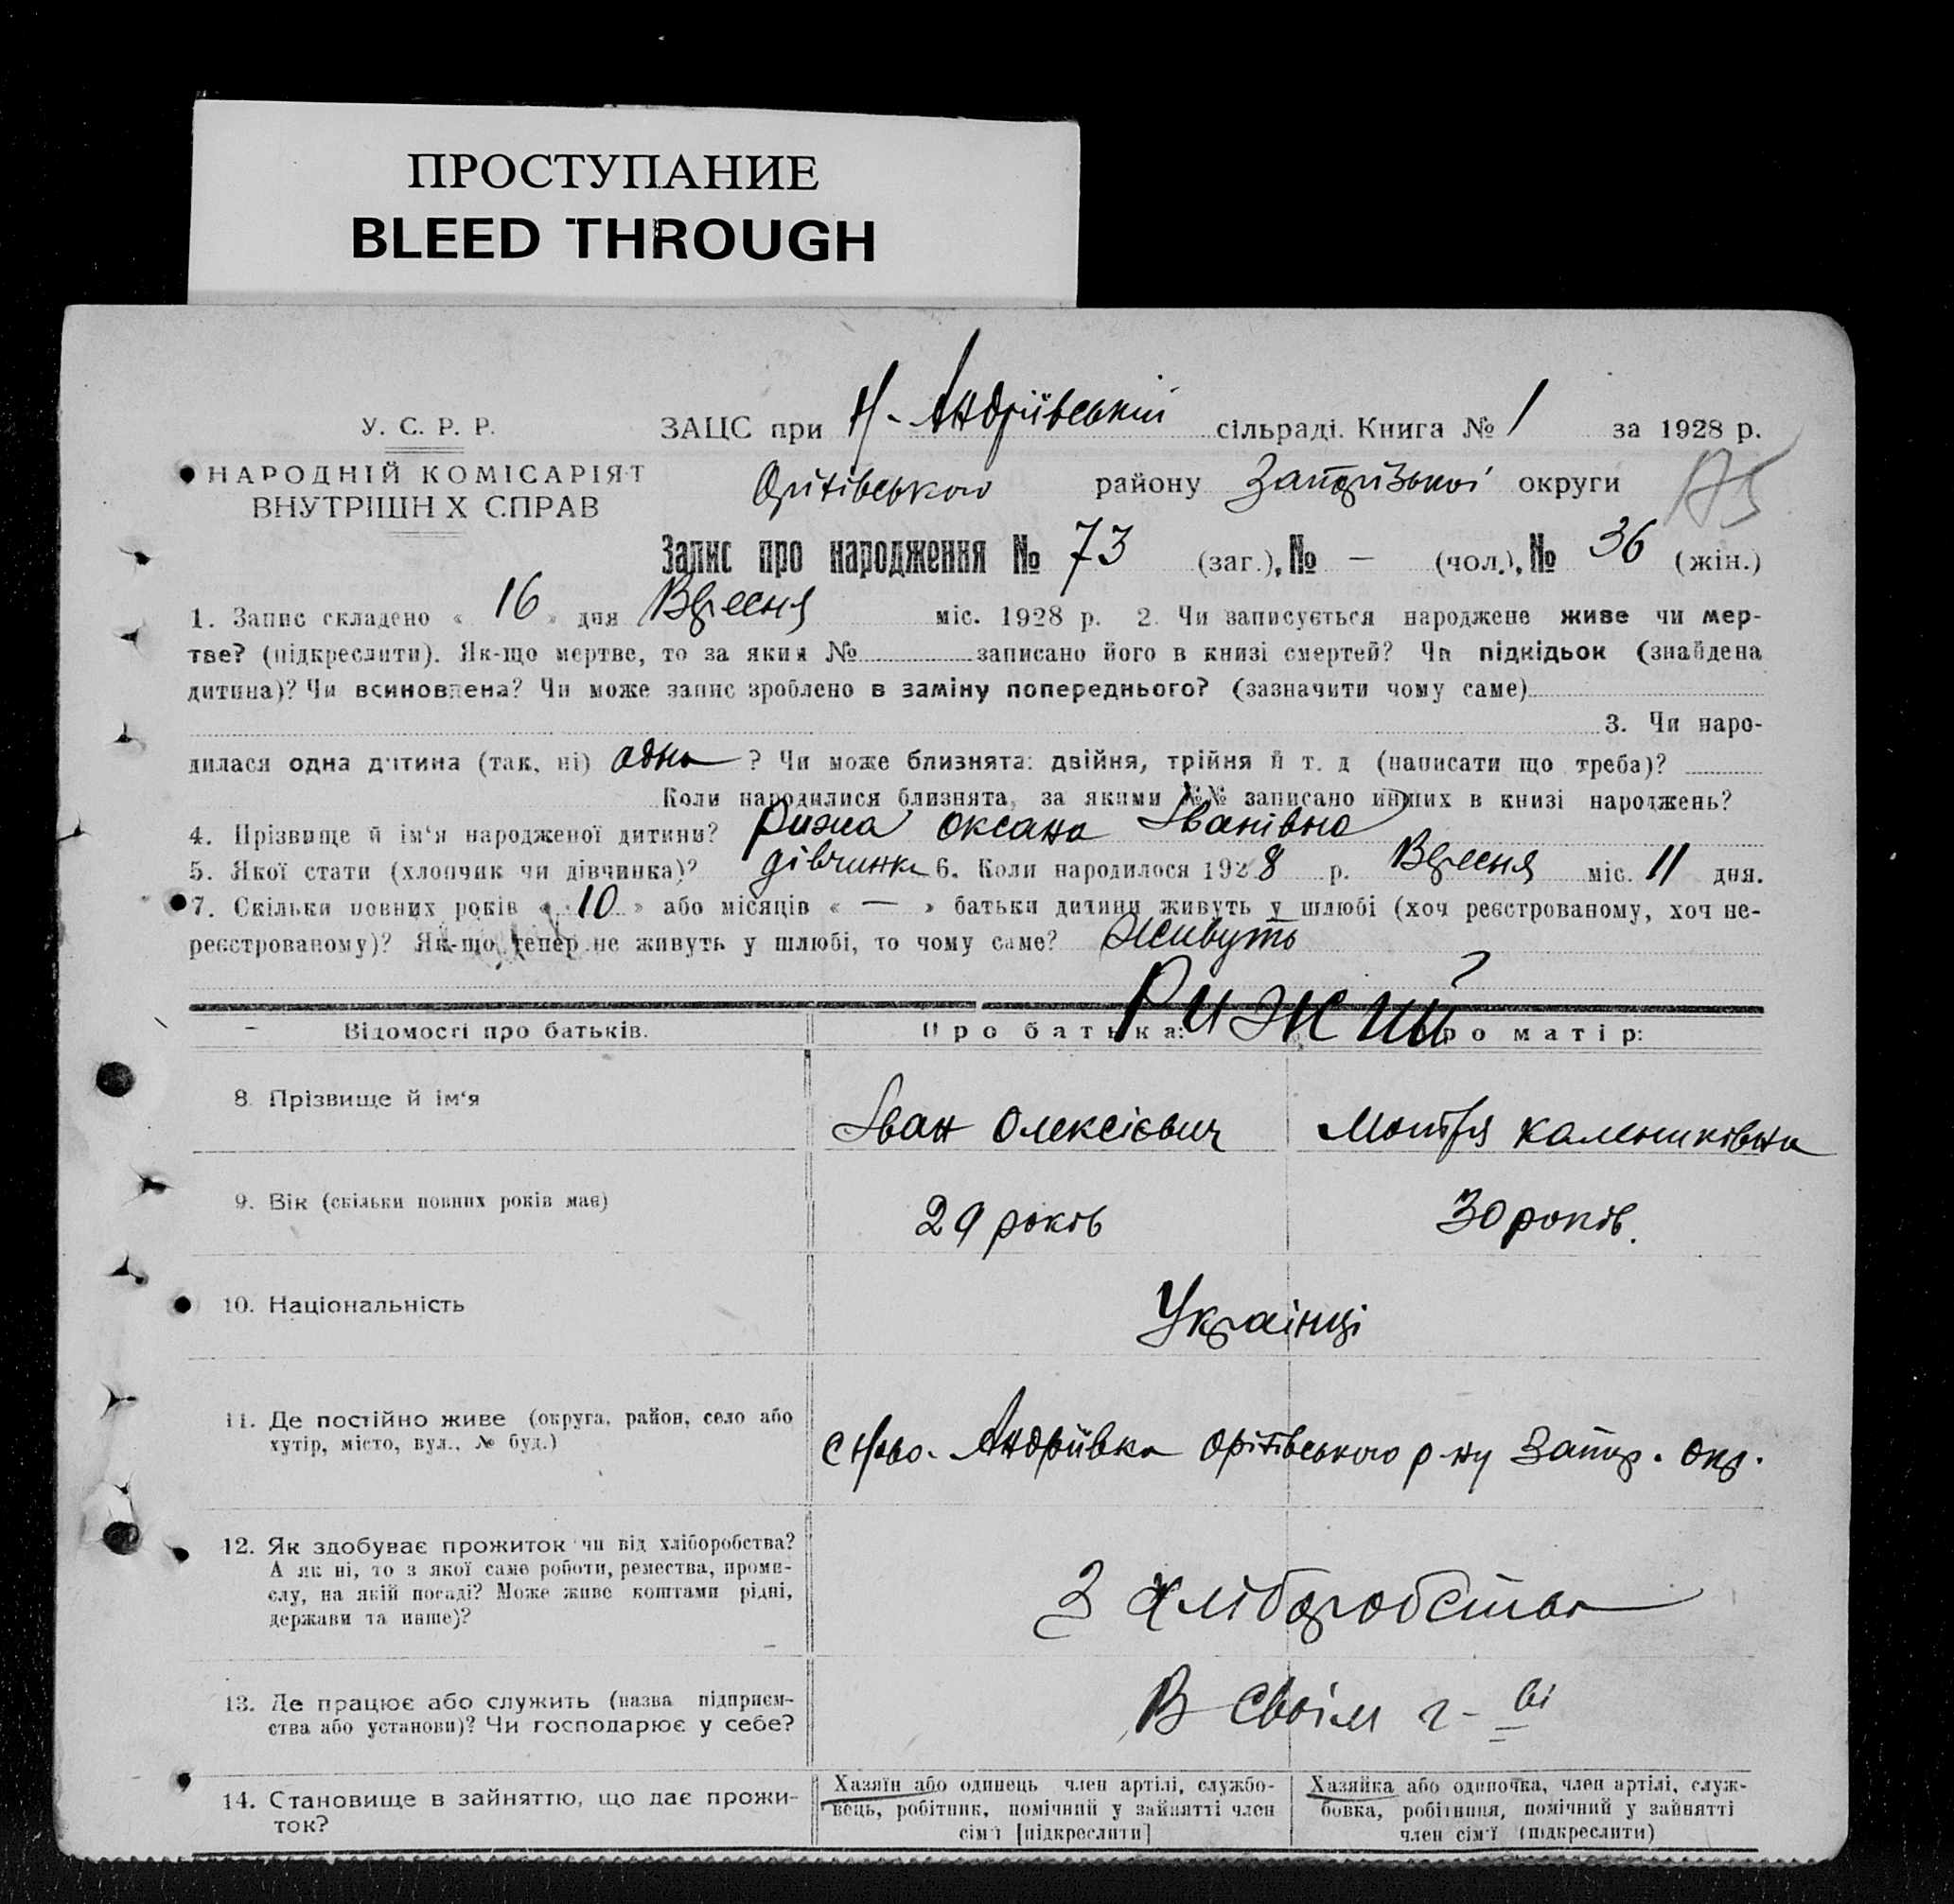 ПРОСТУПАНИЕ
BLEED THROUGH
У. С. Р. Р.
НАРОДНІЙ КОМІСАРІЯТ
ВНУТРІШН Х СПРАВ
ЗАЦС при Н-Андріївській сільраді. Книга № 1 за 1928 р.
Оріхівського району Запорізької округи
Запис про народження № 73 (заг.), № — (чол.), № 36 (жін.)
1. Запис складено « 16 » дня Вересня міс. 1928 р. 2. Чи записується народжене живе чи мер-
тве? (підкреслити). Як-що мертве, то за яким № записано його в книзі смертей? Чи підкідьок (знайдена
дитина)? Чи всиновлена? Чи може запис зроблено в заміну попереднього? (зазначити чому саме)
3. Чи наро-
дилася одна дитина (так, ні) одна ? Чи може близнята: двійня, трійня й т. д (написати що треба)?
Коли народилися близнята, за якими №№ записано инших в книзі народжень?
4. Прізвище й ім‘я народженої дитини? Рижа Оксана Іванівна
5. Якої стати (хлопчик чи дівчинка)? дівчинка 6. Коли народилося 1928 р. Вересня міс. 11 дня.
7. Скільки повних років « 10 » або місяців « — » батьки дитини живуть у шлюбі (хоч реєстрованому, хоч не-
реєстрованому)? Як-що тепер не живуть у шлюбі, то чому саме? Живуть
Рижий
Відомості про батьків. Про батька: Про матір:
8. Прізвище й ім‘я Іван Олексієвич Мотря Калениківна
9. Вік (скільки повних років має) 29 років 30 років.
10. Національність Українці
11. Де постійно живе (округа, район, село або
хутір, місто, вул., № буд.)
с Ново-Андріївка Оріхівського р-ну Запор. окр.
12. Як здобуває прожиток чи від хліборобства?
А як ні, то з якої саме роботи, ремества, проми-
слу, на якій посаді? Може живе коштами рідні,
держави та инше)?
З хліборобства
13. Де працює або служить (назва підприєм-
ства або установи)? Чи господарює у себе?
В своїм г-ві
14. Становище в зайняттю, що дає прожи-
ток?
Хазяїн або одинець член артілі, службо-
вець, робітник, помічний у зайнятті член
сім‘ї [підкреслити]
Хазяйка або одиночка, член артілі, служ-
бовка, робітниця, помічний у зайнятті
член сім‘ї (підкреслити)